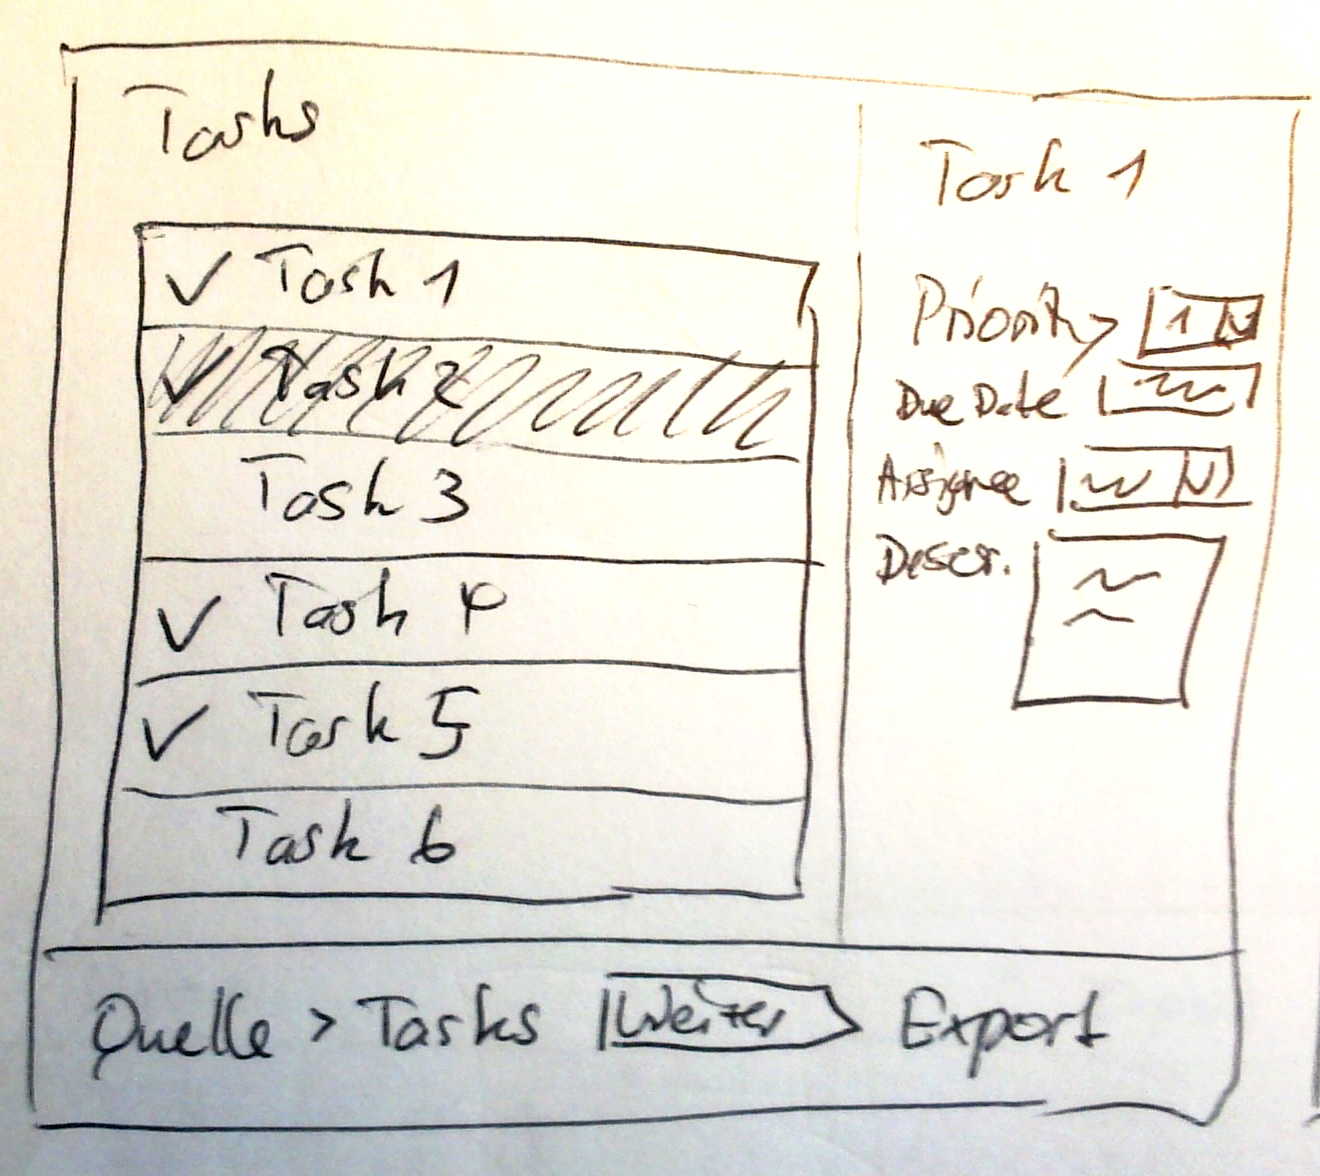 Tasks
Task 1
Task 2
Task 3
Task 4
Task 5
Task 6
Task 1
Priority 1
Due Date
Assignee
Descr.
Quelle > Tasks Weiter Export